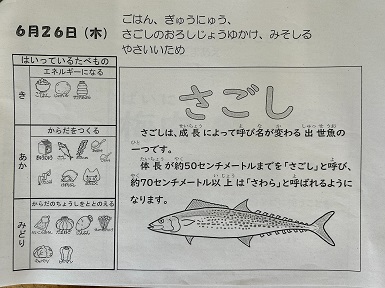 6月26日（木）
ごはん、ぎゅうにゅう、
さごしのおろしじょうゆかけ、みそしる
やさいいため
はいっているたべもの
き
エネルギーになる
あか
からだをつくる
みどり
からだのちょうしをととのえる
さごし
さごしは、成長によって呼び名が変わる出世魚の
一つです。
体長が約50センチメートルまでを「さごし」と呼び、
約70センチメートル以上は「さわら」と呼ばれるように
なります。